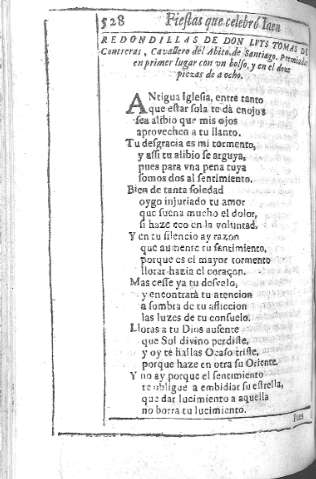 528 Fiestas que celebró Iaen
REDONDILLAS DE DON LVYS TOMAS DE
Contreras, Cavallero del Abito de Santiago. Premiadas
en primer lugar con vn bolso, y en el doze
piezas de a ocho.
ANtigua Iglesia, entre tanto
que estàr sola te dà enojos
sea alibio que mis ojos
aprovechen a tu llanto.
Tu desgracia es mi tormento,
y assi tu alibio se arguya,
pues para vna pena tuya
somos dos al sentimiento.
Bien de tanta soledad
oygo injuriado tu amor
que suena mucho el dolor,
si haze eco en la voluntad.
Y en tu silencio ay razon
que aumente tu sentimiento,
porque es el mayor tormento
llorar hazia el coraçon.
Mas cesse ya tu desvelo,
y encontrarà tu atencion
a sombra de tu afliccion
las luzes de tu consuelo.
Lloras a tu Dios ausente
que Sol divino perdiste,
y oy te hallas Ocaso triste,
porque haze en otra su Oriente.
Y no ay porque el sentimiento
te obligue a embidiar su estrella,
que dar lucimiento a aquella
no borra tu lucimiento.
Pues